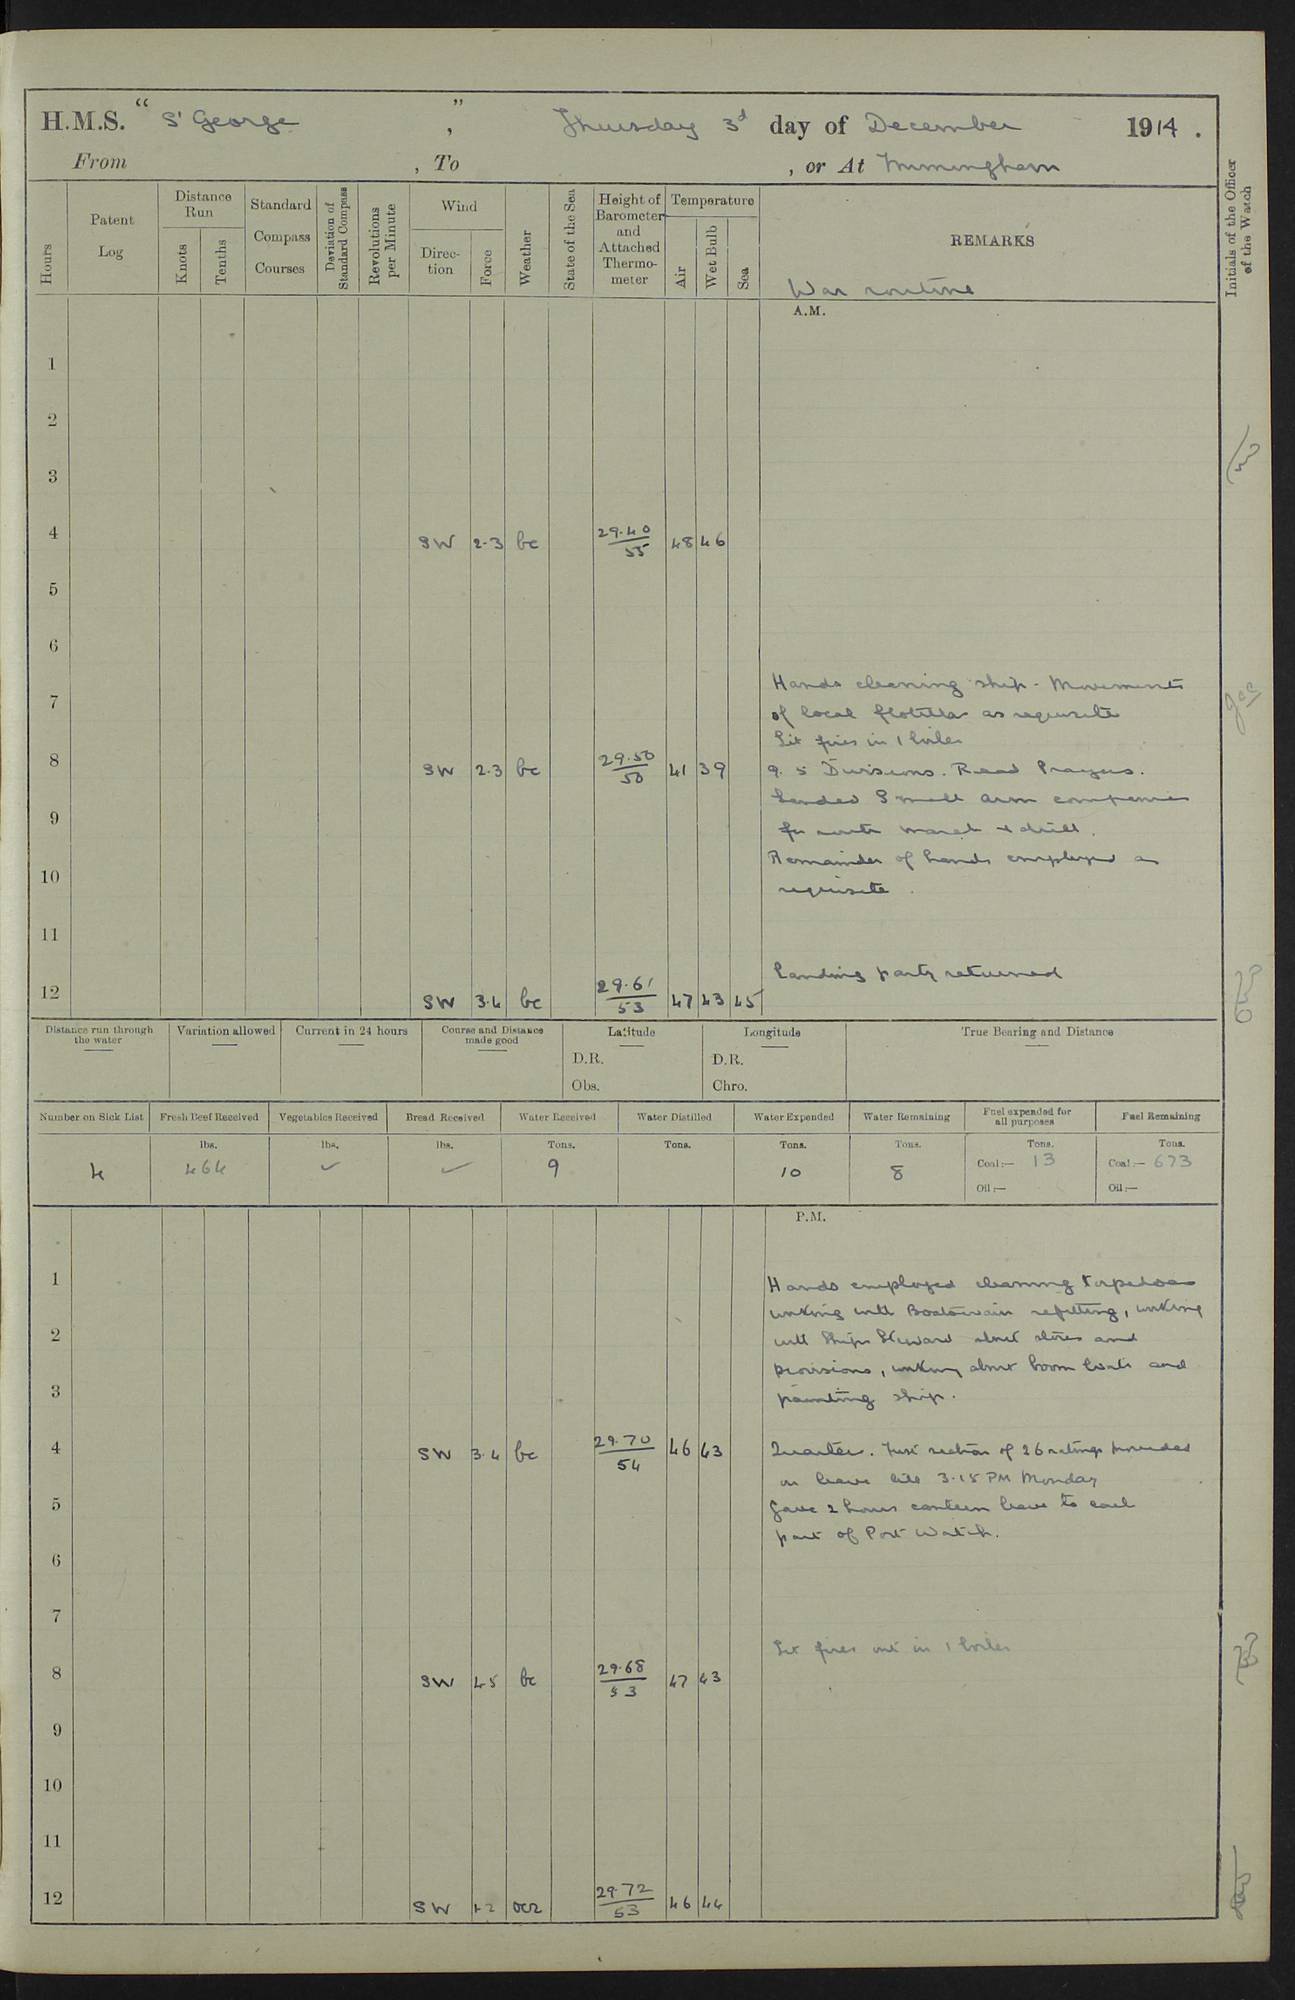 H.M.S. "St George", Thursday 3d day of December 1914.
From , To , or At Immingham
Hours
Patent Log
Distance Run
Knots
Tenths
Standard Compass Courses
Deviation of Standard Compass
Revolutions per Minute
Wind
Direction
Force
Weather
State of the Sea
Height of Barometer and Attached Thermometer
Temperature
Air
Wet Bulb
Sea
REMARKS
Initials of the Officer of the Watch
War routine
A.M.
1
2
3
4 SW 2.3 bc 29.40/55 48 46
5
6
Hands cleaning ship - Movements
7
of local flotilla as requisite
Lit fires in 1 boiler
8 SW 2.3 bc 29.50/50 41 39
9.5 Divisions. Read Prayers.
Landed Small arm companies
9
for route march & drill.
Remainder of hands employed as
10
requisite.
11
Landing party returned
12 SW 3.4 bc 29.61/53 47 43 45
Distance run through the water
Variation allowed
Current in 24 hours
Course and Distance made good
Latitude
D.R.
Obs.
Longitude
D.R.
Chro.
True Bearing and Distance
Number on Sick List
4
Fresh Beef Received
lbs.
464
Vegetables Received
lbs.
✓
Bread Received
lbs.
✓
Water Received
Tons.
9
Water Distilled
Tons.
Water Expended
Tons.
10
Water Remaining
Tons.
8
Fuel expended for all purposes
Tons.
Coal:— 13
Oil:—
Fuel Remaining
Tons.
Coal:— 673
Oil:—
P.M.
1
Hands employed cleaning torpedoes
working with Boatswain refitting, working
2
with Ships Steward about stores and
provisions, working about boom boats and
3
painting ship.
4 SW 3.4 bc 29.70/54 46 43
Quarters. First section of 26 ratings proceeded
on leave till 3.15 PM Monday
5
Gave 2 hours canteen leave to each
part of Port Watch.
6
7
Let fires out in 1 boiler
8 SW 4.5 bc 29.68/53 47 43
9
10
11
12 SW 1.2 ocr 29.72/53 46 44